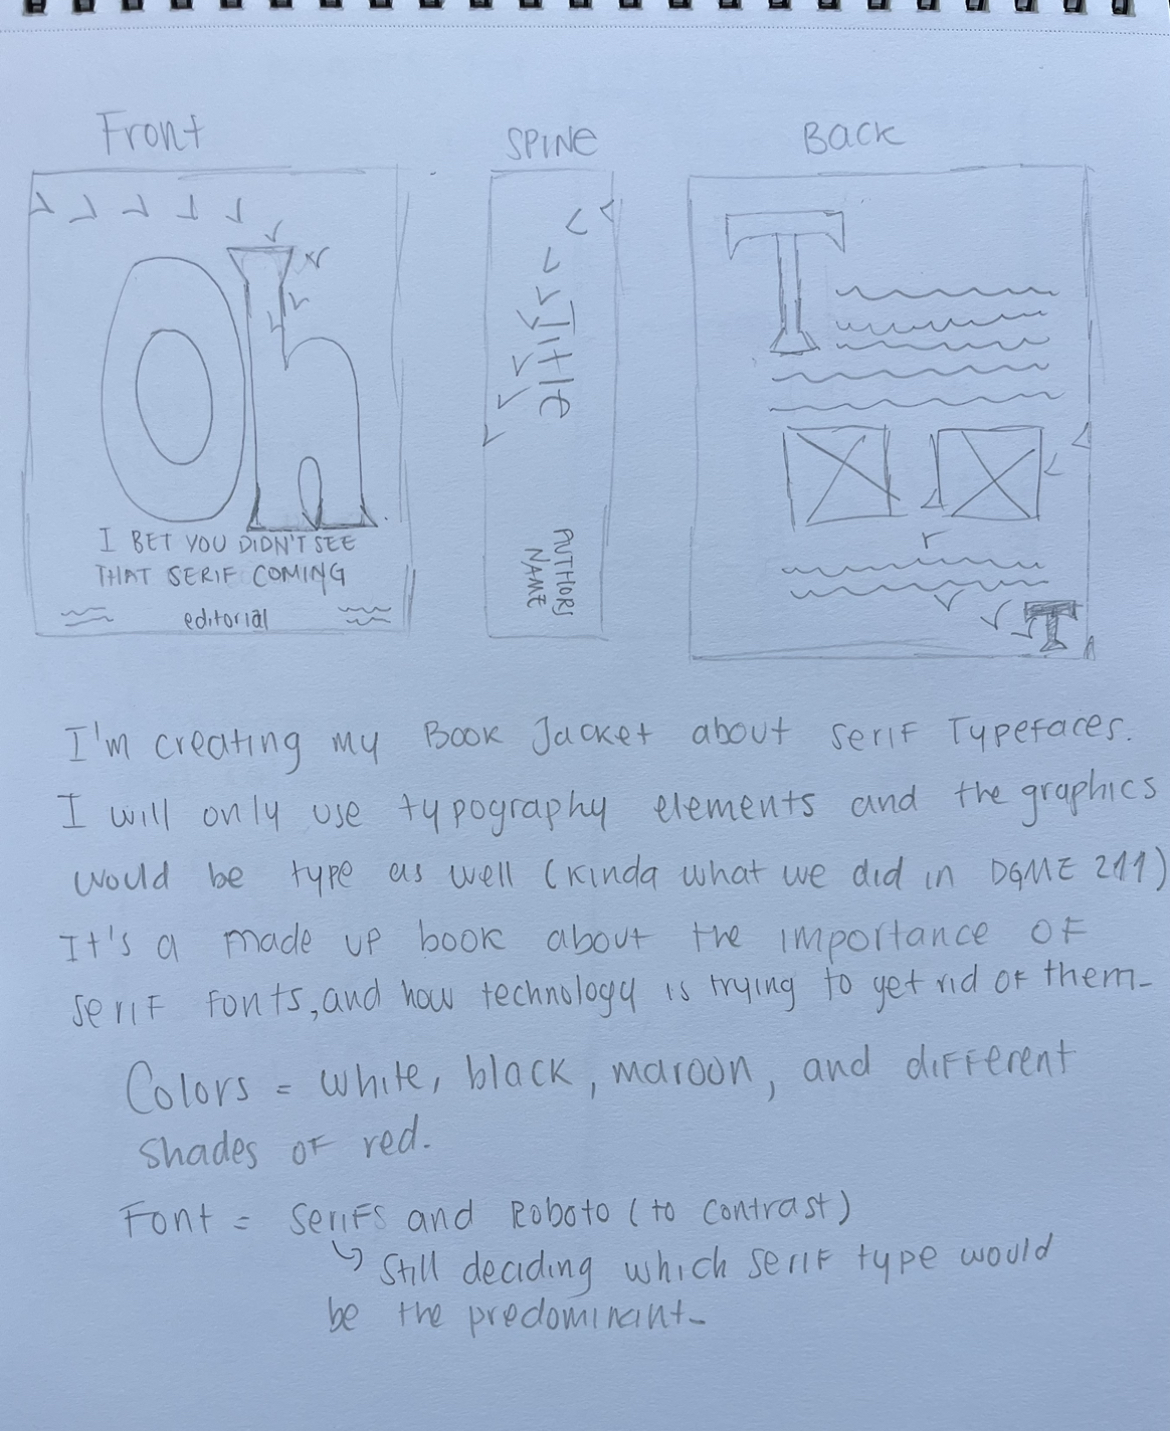 Front
SPINE
Back
Oh
I BET YOU DIDN'T SEE
THAT SERIF COMING
editorial
Title
AUTHOR
NAME
T
r
T
I'm creating my Book Jacket about serif Typefaces.
I will only use typography elements and the graphics
would be type as well (kinda what we did in DGME 211)
It's a made up book about the importance of
serif fonts, and how technology is trying to get rid of them-
Colors = white, black, maroon, and different
shades of red.
Font = serifs and Roboto (to contrast)
still deciding which serif type would
be the predominant-